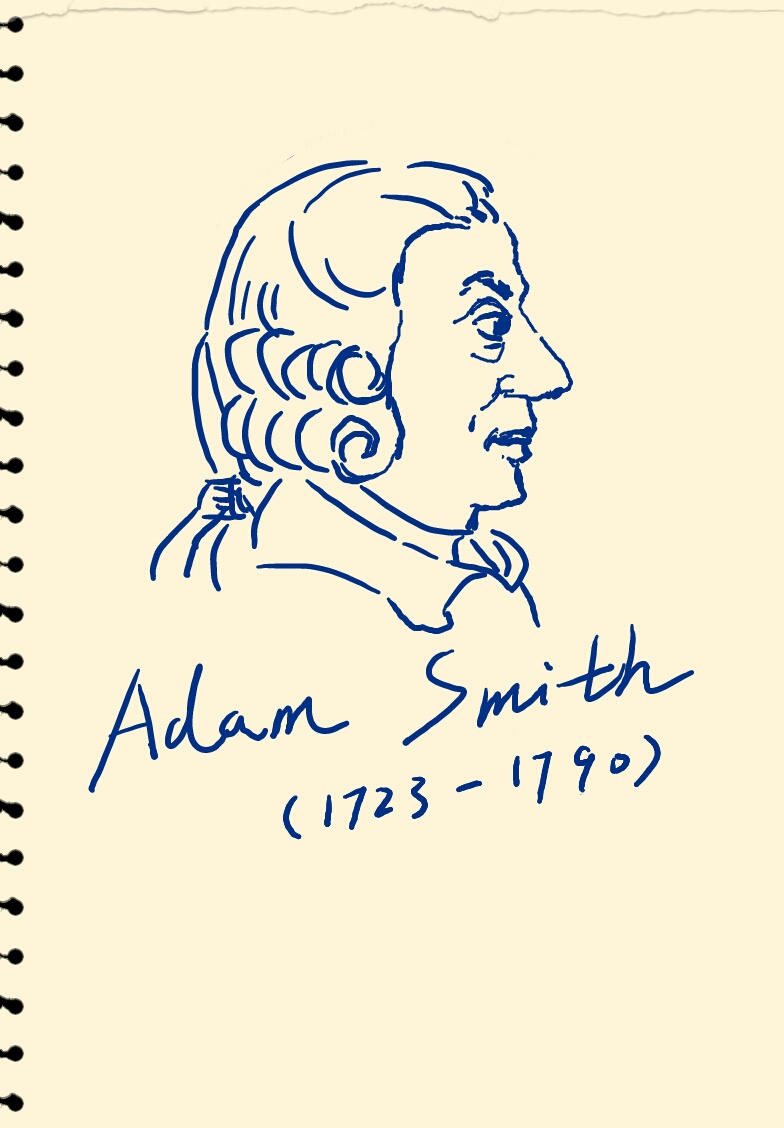 Adam Smith
(1723-1790)